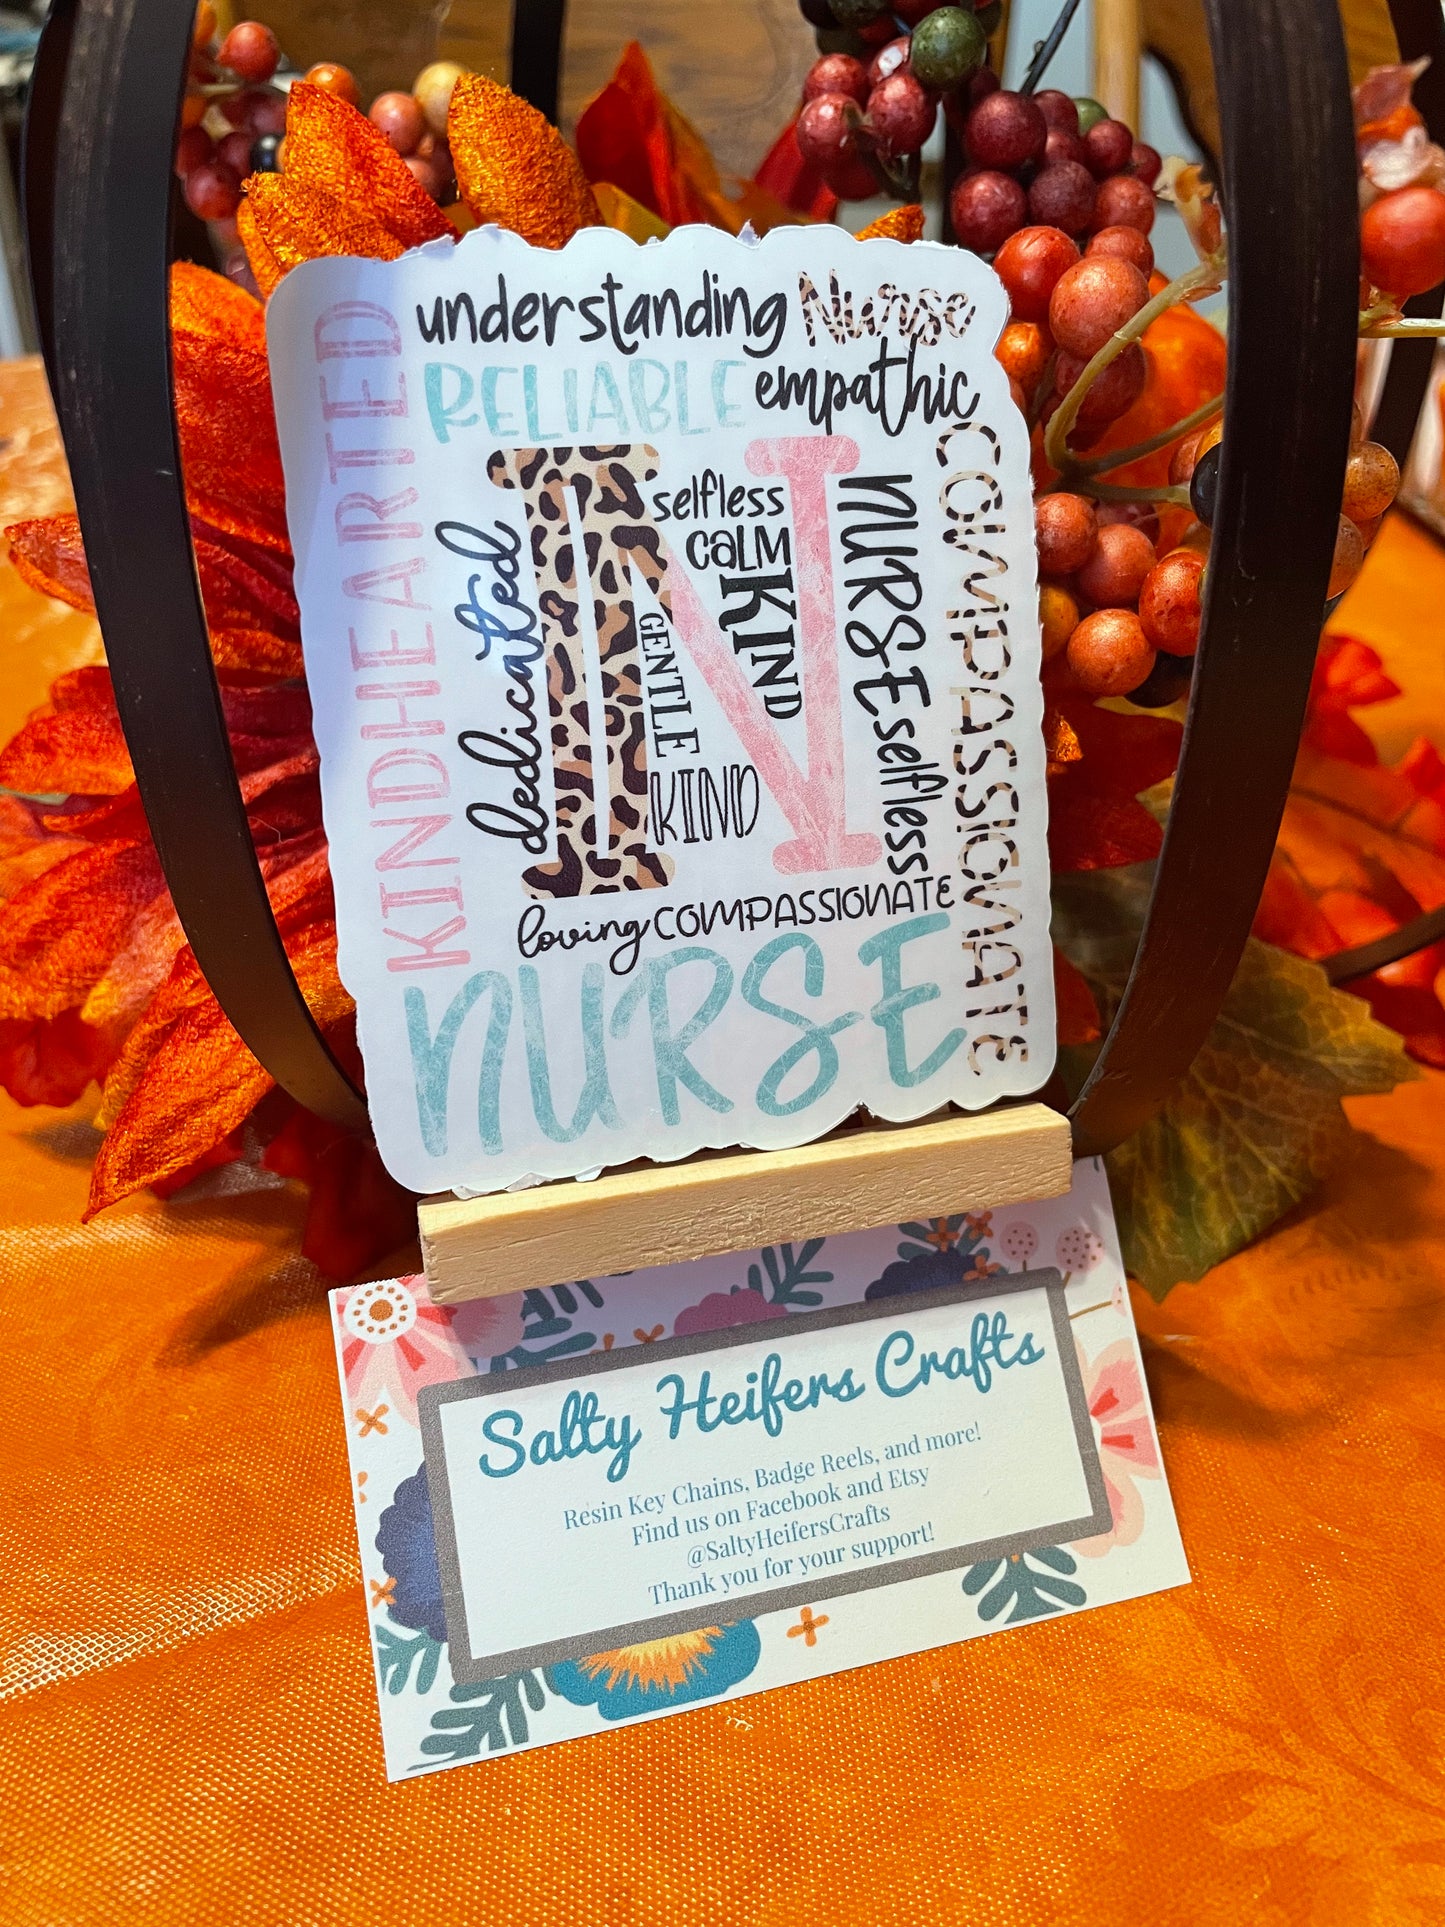 understanding Nurse
RELIABLE empathic
KINDHEARTED
dedicated
N
selfless
CALM
KIND
GENTLE
KIND
NURSE selfless
COMPASSIONATE
loving COMPASSIONATE
NURSE
Salty Heifers Crafts
Resin Key Chains, Badge Reels, and more!
Find us on Facebook and Etsy
@SaltyHeifersCrafts
Thank you for your support!